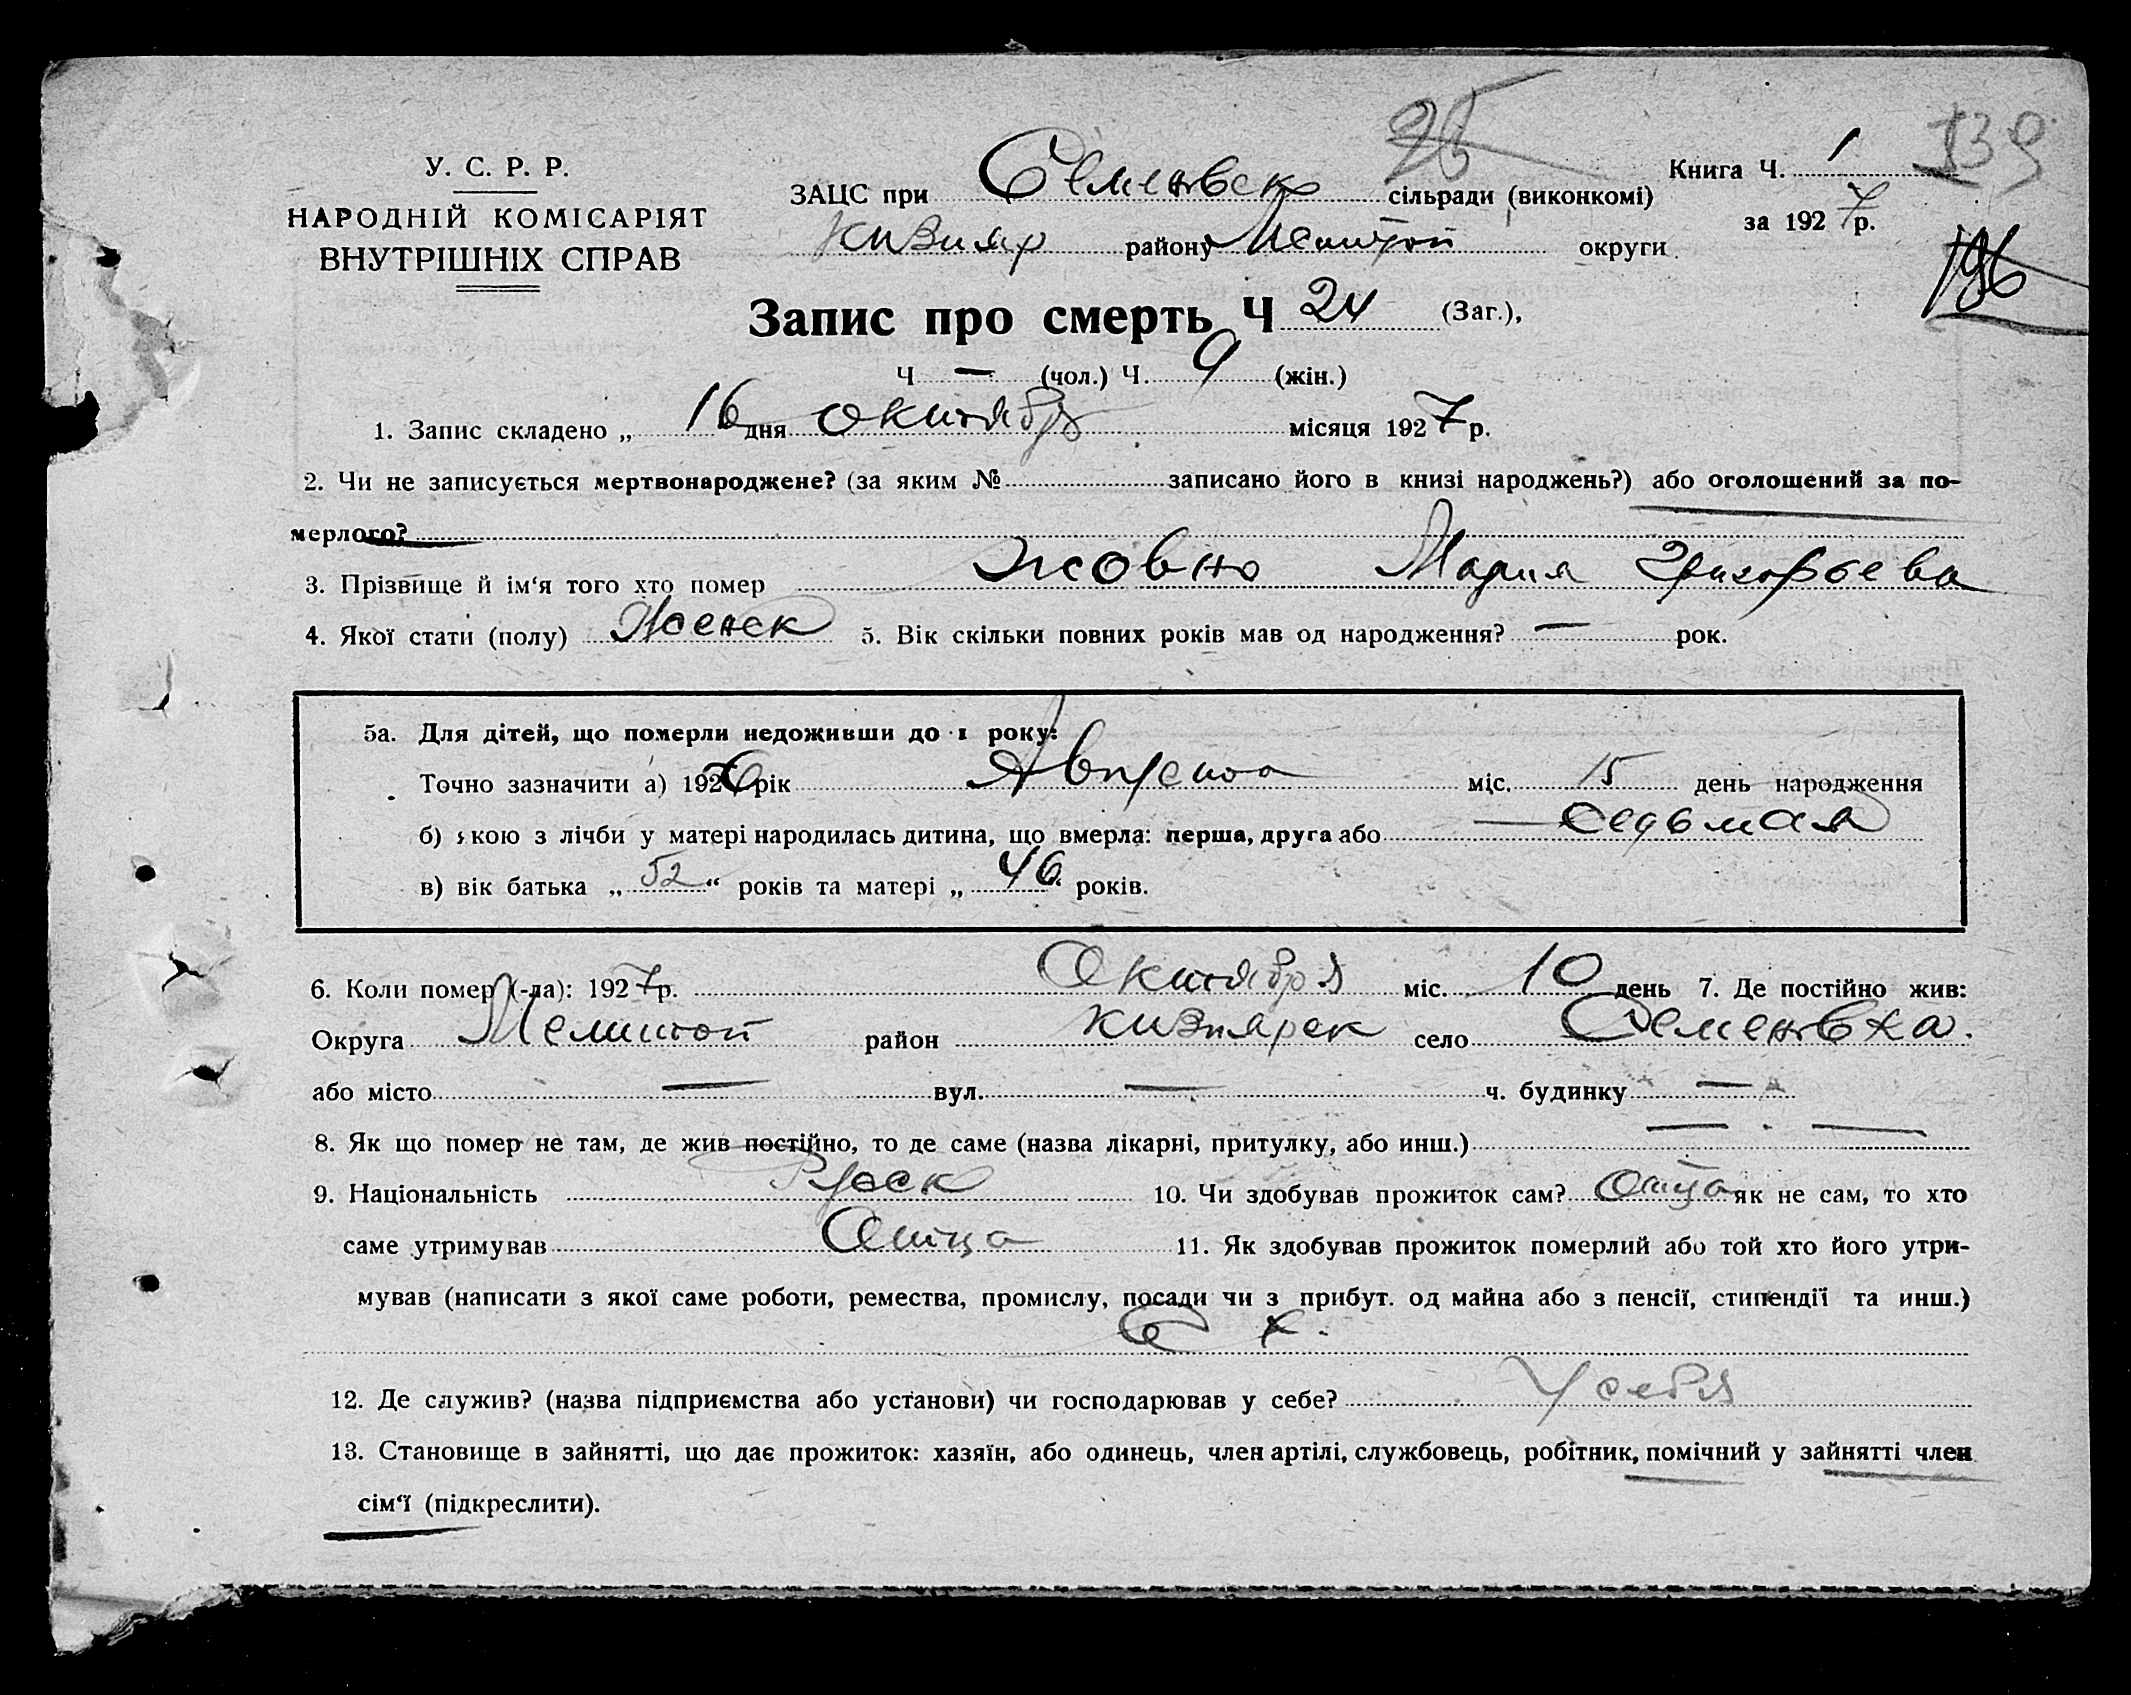 25
139
У. С. Р. Р.
НАРОДНІЙ КОМІСАРІЯТ
ВНУТРІШНІХ СПРАВ
ЗАЦС при Семеновск сільради (виконкомі)
Книга Ч. 1
за 1927 р.
Кизияр району Мелитоп округи
196
Запис про смерть Ч 24 (Заг.),
Ч — (чол.) Ч. 9 (жін.)
1. Запис складено „ 16 дня октября місяця 1927 р.
2. Чи не записується мертвонароджене? (за яким № записано його в книзі народжень?) або оголошений за по-
мерлого?
3. Прізвище й ім'я того хто помер Жовню Мария Григорьева
4. Якої стати (полу) Женск 5. Вік скільки повних років мав од народження? — рок.
5а. Для дітей, що померли недоживши до 1 року:
Точно зазначити а) 1926 рік Августа міс. 15 день народження
б) якою з лічби у матері народилась дитина, що вмерла: перша, друга або — седьмая
в) вік батька „ 52 “ років та матері „ 46 “ років.
6. Коли помер (-ла): 1927 р. Октября міс. 10 день 7. Де постійно жив:
Округа Мелитоп район Кизиярск село Семеновка.
або місто — вул. — ч. будинку —
8. Як що помер не там, де жив постійно, то де саме (назва лікарні, притулку, або инш.) — . —
9. Національність Русск 10. Чи здобував прожиток сам? Отца як не сам, то хто
саме утримував Отца 11. Як здобував прожиток померлий або той хто його утри-
мував (написати з якої саме роботи, ремества, промислу, посади чи з прибут. од майна або з пенсії, стипендії та инш.)
С Х.
12. Де служив? (назва підприємства або установи) чи господарював у себе? У себя
13. Становище в зайнятті, що дає прожиток: хазяїн, або одинець, член артілі, службовець, робітник, помічний у зайнятті член
сім'ї (підкреслити).